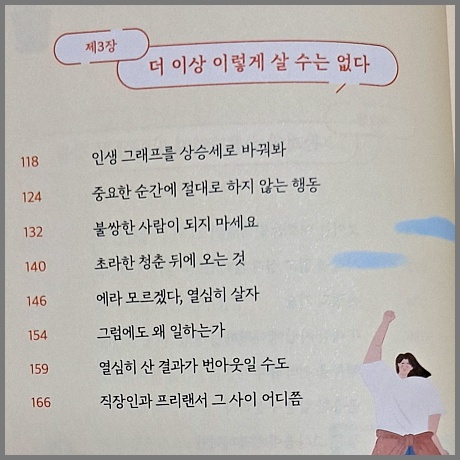 제3장
더 이상 이렇게 살 수는 없다
118 인생 그래프를 상승세로 바꿔봐
124 중요한 순간에 절대로 하지 않는 행동
132 불쌍한 사람이 되지 마세요
140 초라한 청춘 뒤에 오는 것
146 에라 모르겠다, 열심히 살자
154 그럼에도 왜 일하는가
159 열심히 산 결과가 번아웃일 수도
166 직장인과 프리랜서 그 사이 어디쯤